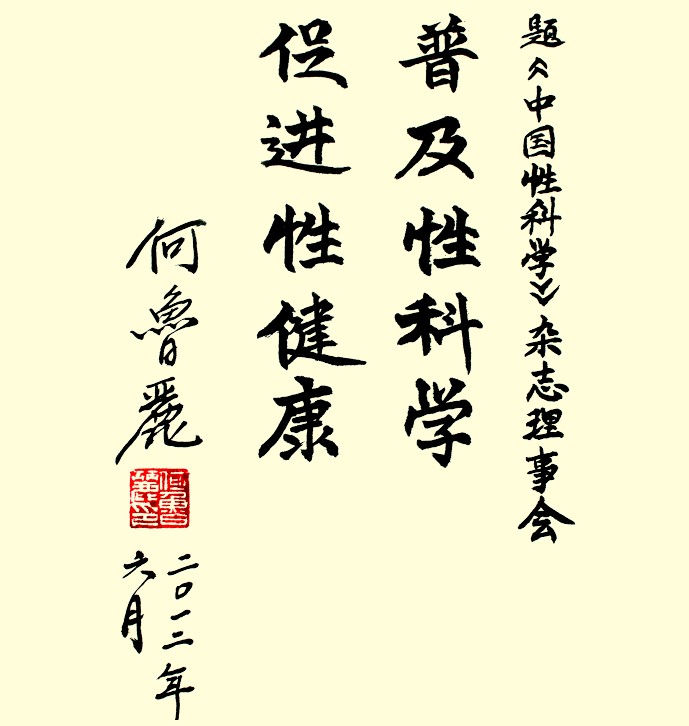 题《中国性科学》杂志理事会
普及性科学
促进性健康
何鲁麗
二〇一二年
六月